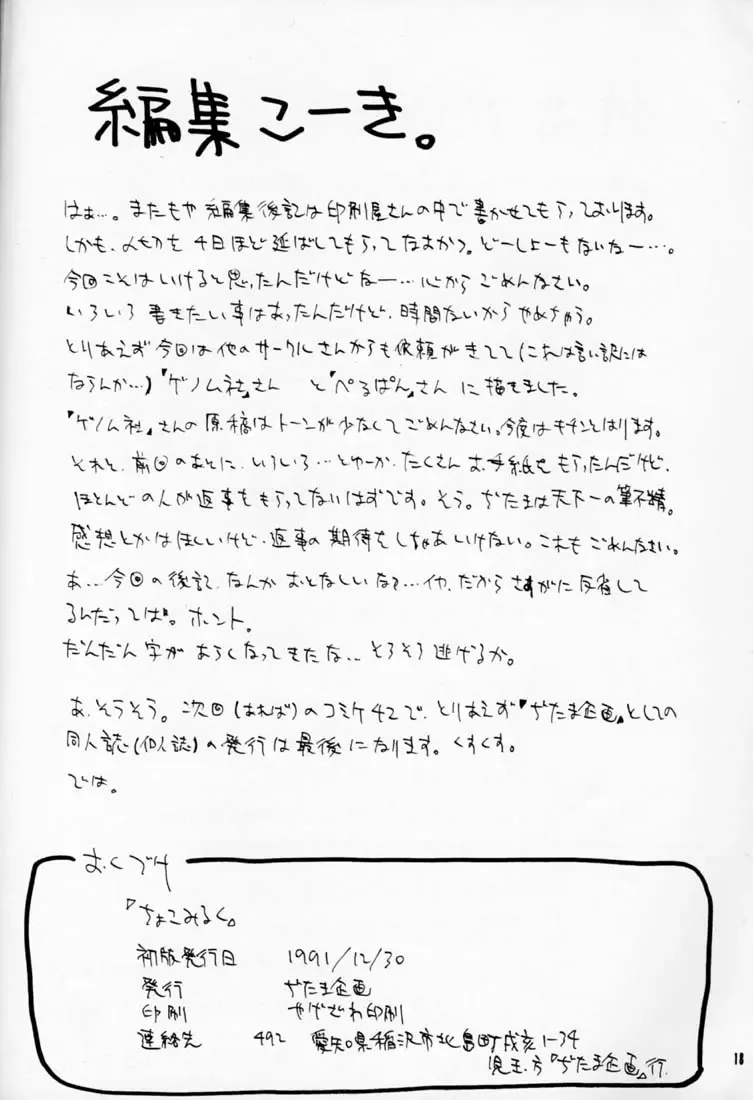 編集こーき。
はぁ…。またもや編集後記は印刷屋さんの中で書かせてもらっております。
しかも、〆切を4日ほど延ばしてもらってなおかつ。どーしょーもないなー…。
今回こそはいけると思ったんだけどなー…心からごめんなさい。
いろいろ書きたい事はあったんだけど、時間ないからやめちゃう。
とりあえず今回は他のサークルさんからも依頼がきてて(これは言い訳には
ならんか…)『ゲノム社』さん と『ぺるぱん』さん に描きました。
『ゲノム社』さんの原稿はトーンが少なくてごめんなさい。今度はキチンとはります。
それと、前回のあとに、いろいろ…とゆーか、たくさんお手紙をもらったんだけど、
ほとんどの人が返事をもらってないはずです。そう。ぢたまは天下一の筆不精。
感想とかはほしいけど、返事の期待をしちゃあいけない。これもごめんなさい。
あ…今回の後記、なんかおとなしいなぁ…イヤ、だからさすがに反省して
るんだってば。ホント。
だんだん字があらくなってきたな…そろそろ逃げるか。
あ、そうそう。次回(あれば)のコミケ42で、とりあえず『ぢたま企画』としての
同人誌(個人誌)の発行は最後になります。くすくす。
では。
おくづけ
『ちょこみるく』
初版発行日 1991/12/30
発行 ぢたま企画
印刷 やげざわ印刷
連絡先 492 愛知県稲沢市北島町戌亥1-34
児玉方『ぢたま企画』行
18